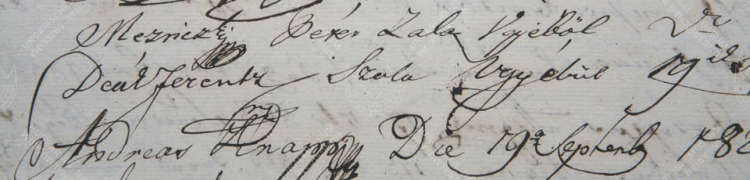 Mezriczky Péter Zala Vgyéböl Dr
Deák Ferentz Szala Vgyébül 19
Andreas Knapp Die 19a Septemb 182